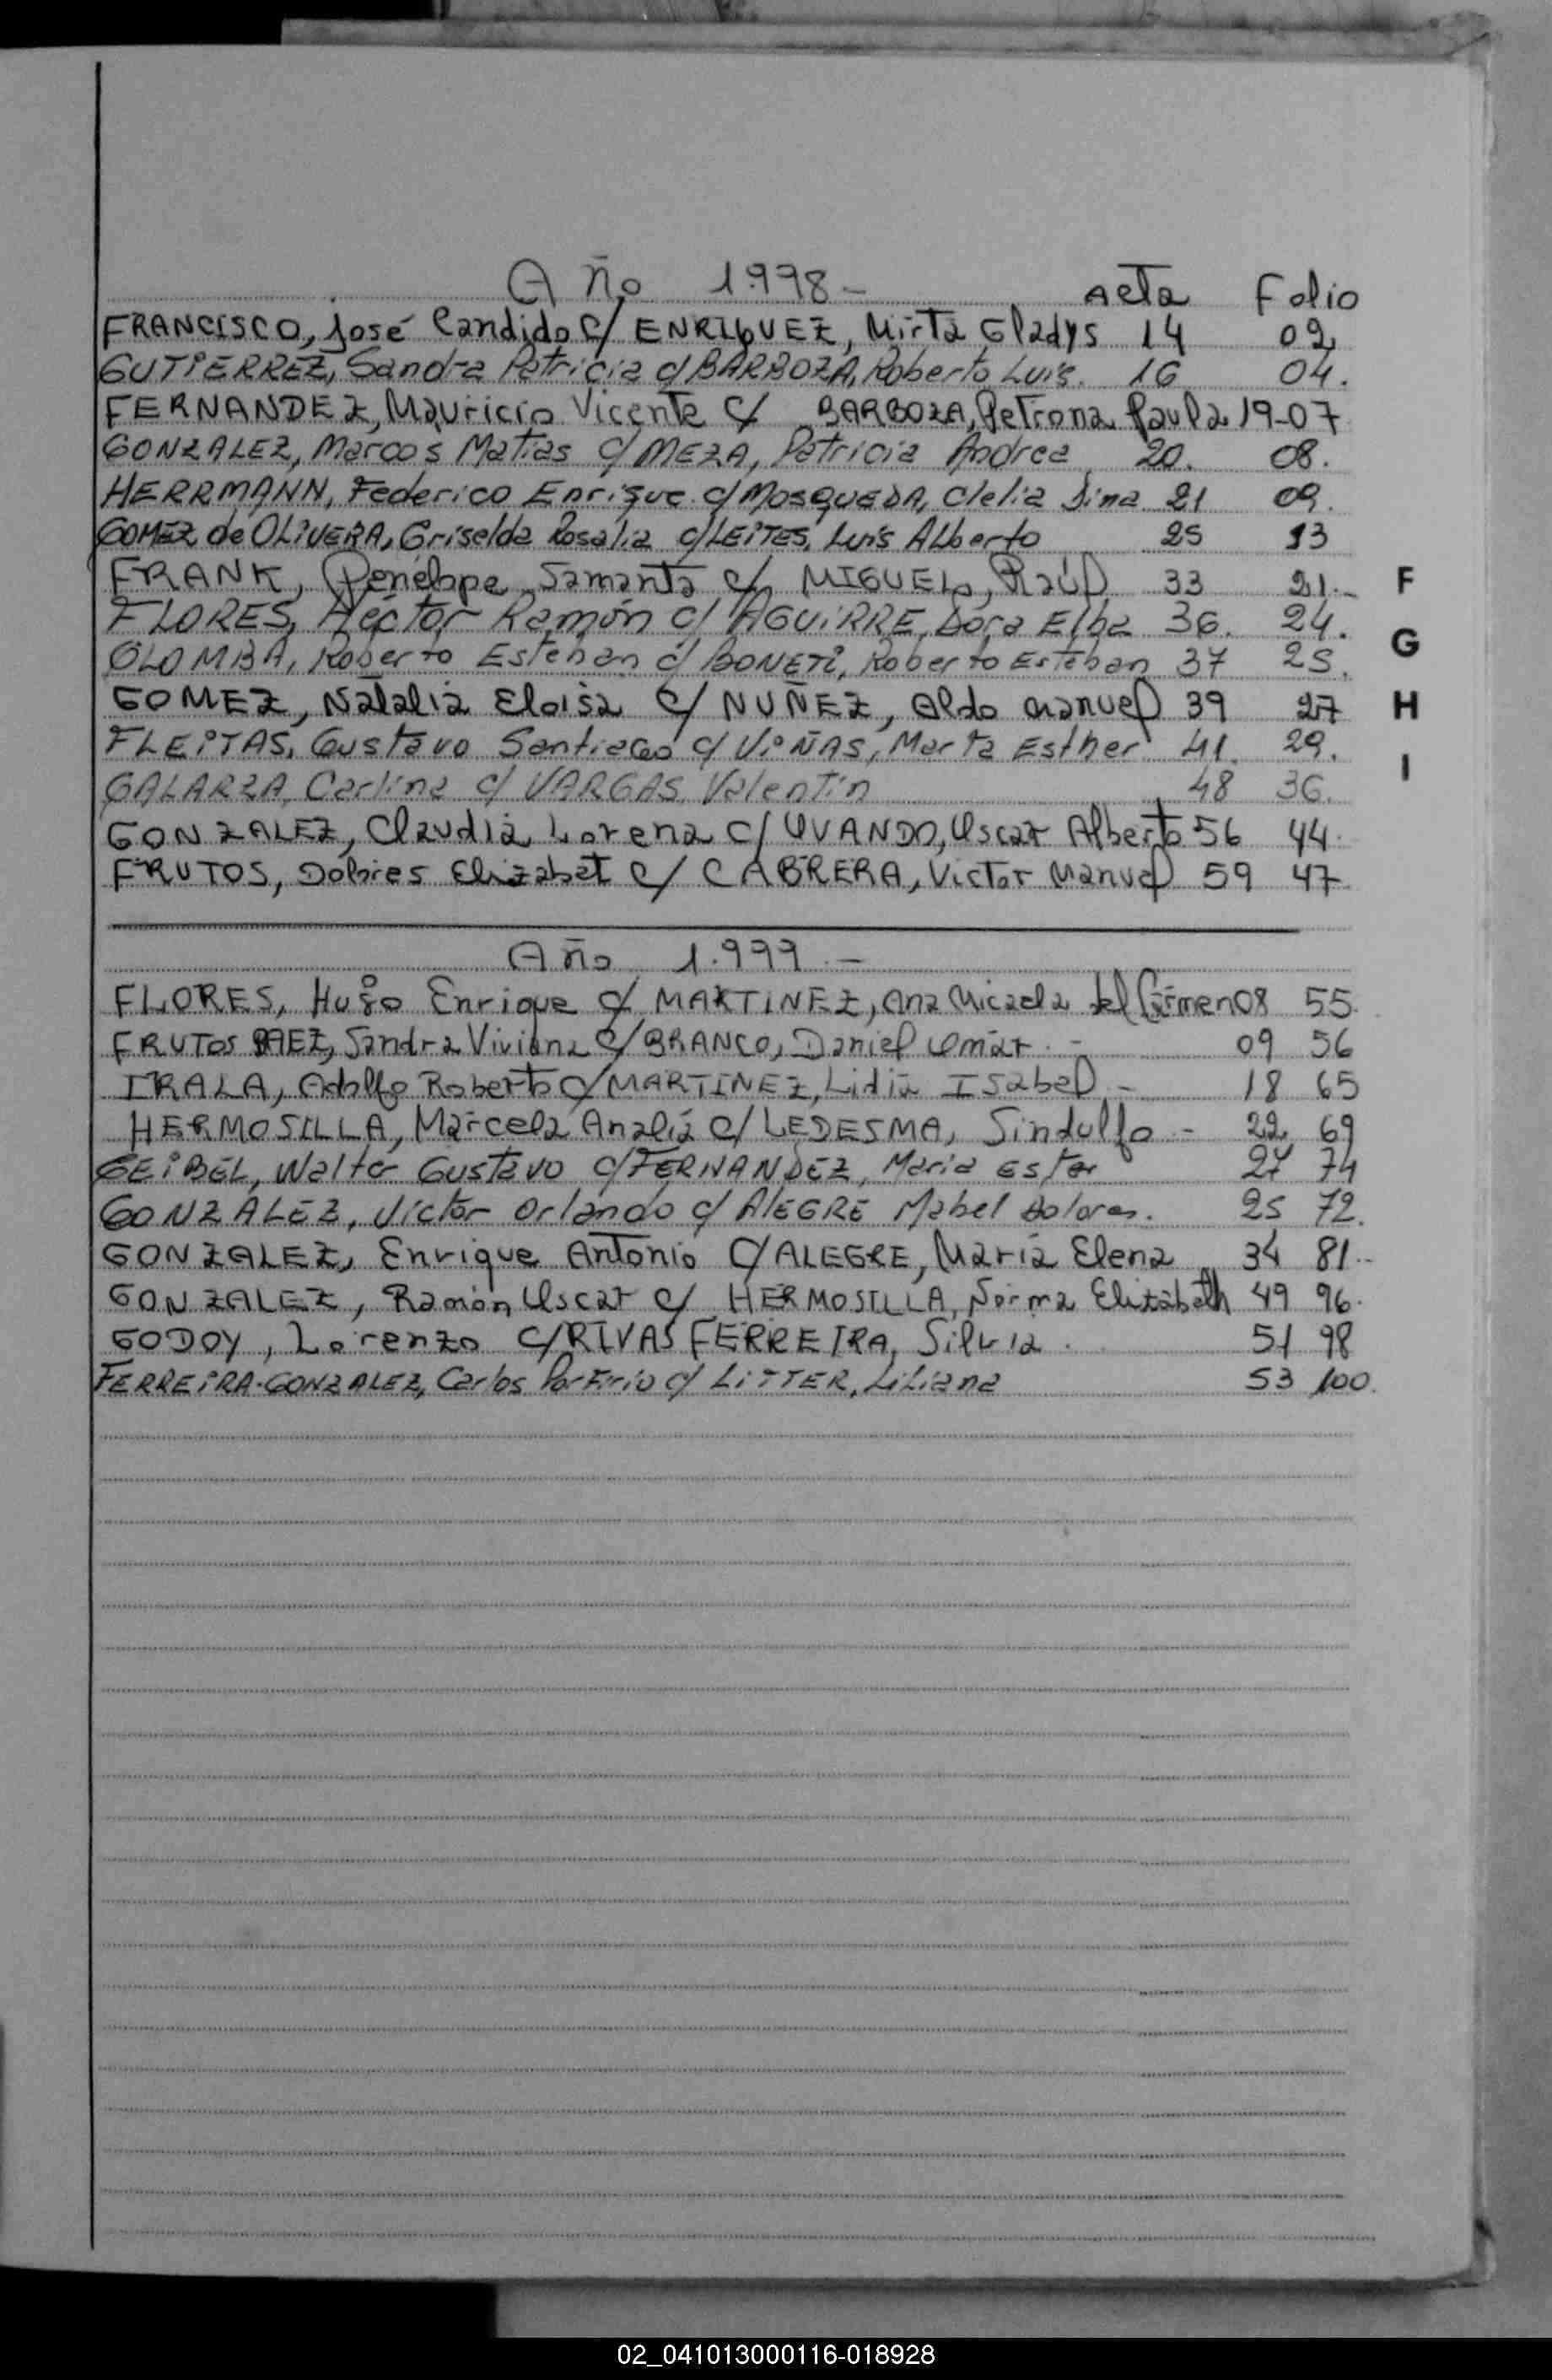 Año 1.998- Acta Folio
FRANCISCO, José Candido c/ ENRIQUEZ, Mirta Gladys 14 02
GUTIERREZ, Sandra Patricia c/ BARBOZA, Roberto Luis. 16 04.
FERNANDEZ, Mauricio Vicente c/ BARBOZA, Petrona Paula 19-07
GONZALEZ, Marcos Matias c/ MEZA, Patricia Andrea 20. 08.
HERRMANN, Federico Enrique c/ MOSQUEDA, Clelia Dina 21 09.
GOMEZ de OLIVERA, Griselda Rosalia c/ LEITES, Luis Alberto 25 13
FRANK, Penélope Samanta c/ MIGUEL, Raúl 33 21.-
FLORES, Héctor Ramón c/ AGUIRRE, Dora Elba 36. 24.
OLOMBA, Roberto Esteban c/ BONETI, Roberto Esteban 37 25.
GOMEZ, Natalia Eloisa c/ NUÑEZ, Aldo Manuel 39 27
FLEITAS, Gustavo Santiago c/ VIÑAS, Marta Esther 41. 29.
GALARZA, Carlina c/ VARGAS, Valentín 48 36.
GONZALEZ, Claudia Lorena c/ OVANDO, Oscar Alberto 56 44.
FRUTOS, Dolores Elizabet c/ CABRERA, Victor Manuel 59 47.
Año 1.999.-
FLORES, Hugo Enrique c/ MARTINEZ, Ana Micaela del Carmen 08 55.
FRUTOS BAEZ, Sandra Viviana c/ BRANCO, Daniel Omar.- 09 56
IRALA, Adolfo Roberto c/ MARTINEZ, Lidia Isabel- 18 65
HERMOSILLA, Marcela Analía c/ LEDESMA, Sindulfo- 22 69
GEIBEL, Walter Gustavo c/ FERNANDEZ, Maria Ester 27 74
GONZALEZ, Victor Orlando c/ ALEGRE Mabel Dolores. 25 72.
GONZALEZ, Enrique Antonio c/ ALEGRE, María Elena 34 81.-
GONZALEZ, Ramón Oscar c/ HERMOSILLA, Norma Elizabeth 49 96.
GODOY, Lorenzo c/ RIVAS FERREIRA, Silvia. 51 98
FERREIRA-GONZALEZ, Carlos Porfirio c/ LITTER, Liliana 53 100.
F
G
H
I
02_041013000116-018928